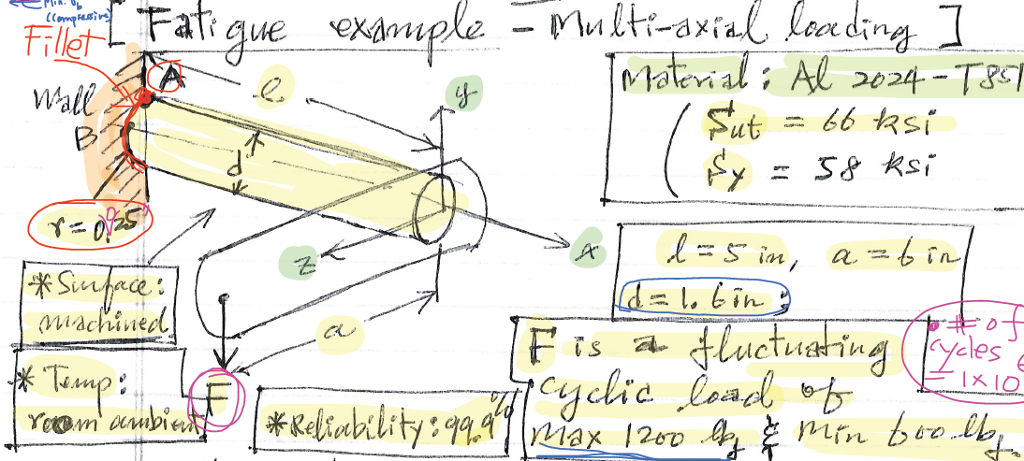 Min. σb
(compressive)
[ Fatigue example - Multi-axial loading ]
Fillet
A
Wall
B
l
y
d
r = 0.25"
z
x
a
F
Material : Al 2024-T851
Sut = 66 ksi
Sy = 58 ksi
l = 5 in, a = 6 in
d = 1.6 in
* Surface:
machined
* Temp:
room ambient
* Reliability: 99.9%
F is a fluctuating
cyclic load of
max 1200 lbf & min 600 lbf.
# of
cycles
= 1×10